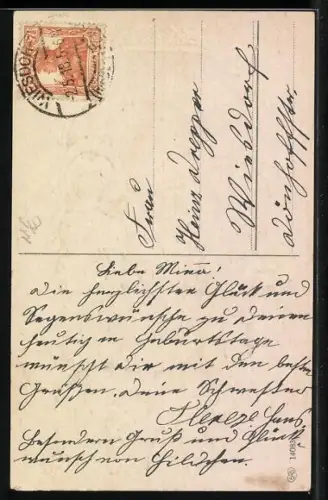 WIESDO
Frau
Heinz Dregger
Wiesdorf
Dönhoffstr.
Liebe Minna!
Die herzlichsten Glück und
Segenswünsche zu deinem
heutigen Geburtstage
wünscht dir mit den besten
Grüßen, deine Schwester
Hans,
Besonderen Gruß und Glück
wunsch von Hildchen.